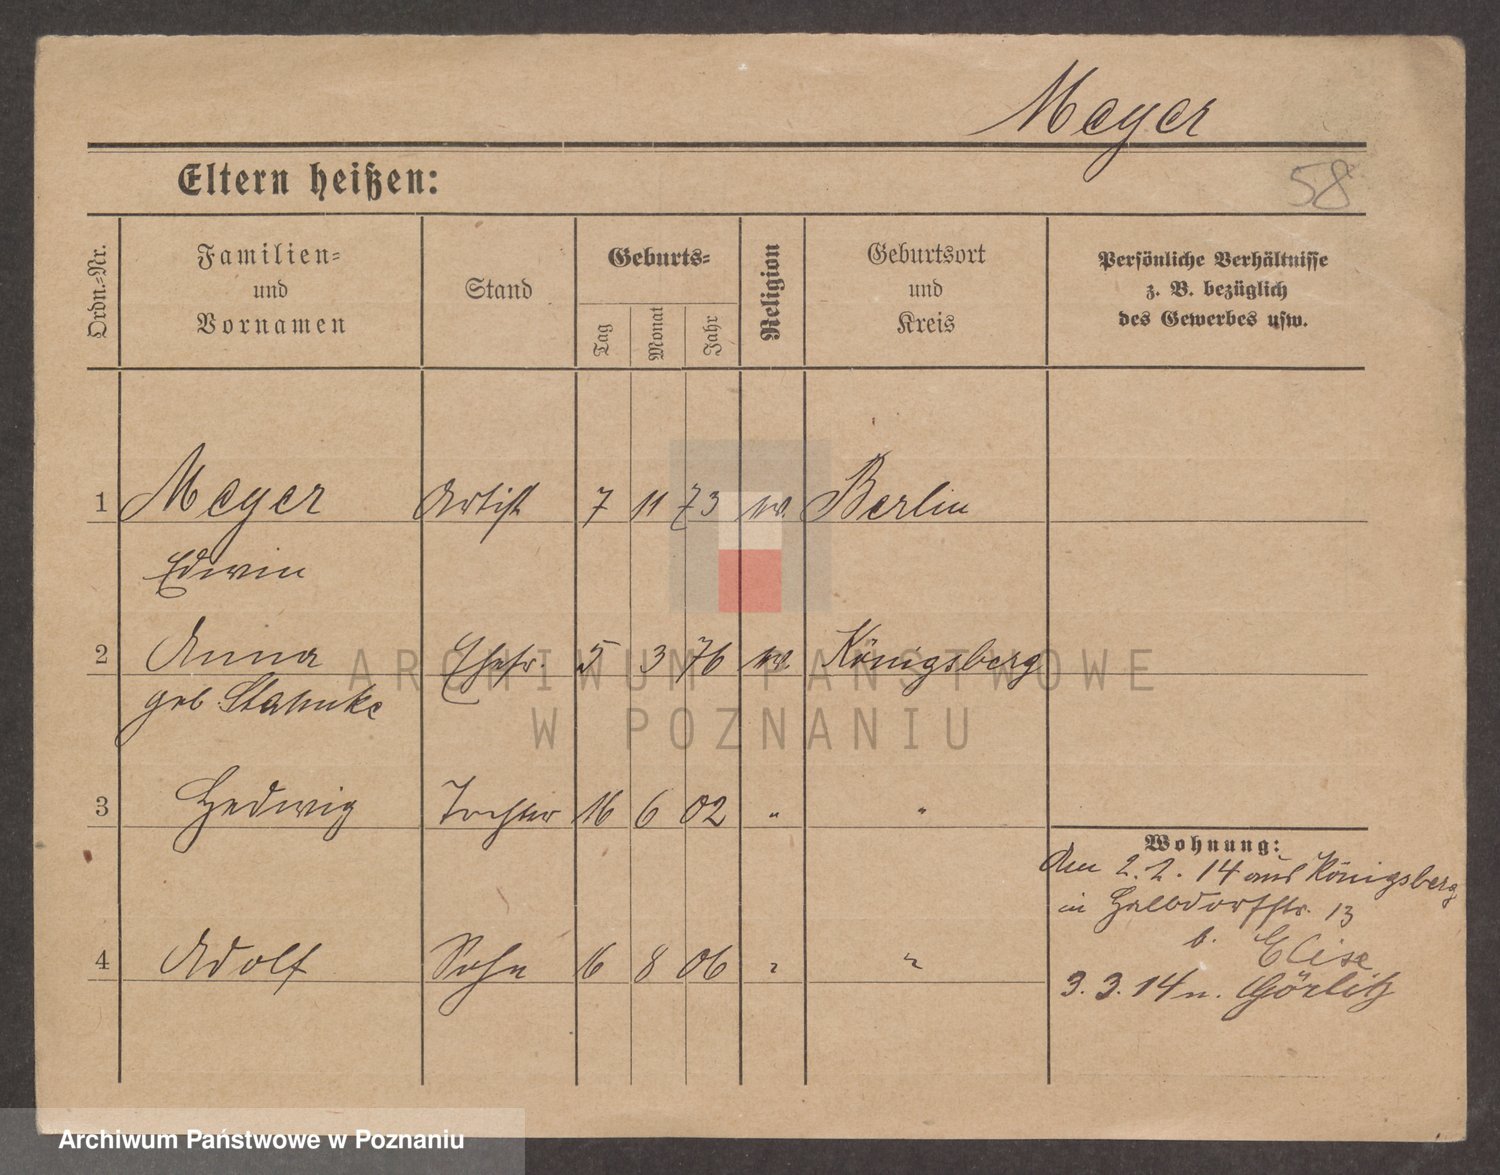 Meyer
58
Eltern heißen:
Ordn.-Nr.
Familien-
und
Vornamen
Stand
Geburts-
Tag
Monat
Jahr
Religion
Geburtsort
und
Kreis
Persönliche Verhältnisse
z. B. bezüglich
des Gewerbes usw.
1 Meyer Artist 7 11 73 ev. Berlin
Edwin
2 Anna Ehefr. 5 3 76 ev. Königsberg
geb. Stahnke
3 Hedwig Tochter 16 6 02 " "
4 Adolf Sohn 6 8 06 " "
Wohnung:
Am 2. 2. 14 aus Königsberg
in Halbdorfstr. 13
b. Elise
3. 3. 14 n. Görlitz
ARCHIWUM PAŃSTWOWE
W POZNANIU
Archiwum Państwowe w Poznaniu